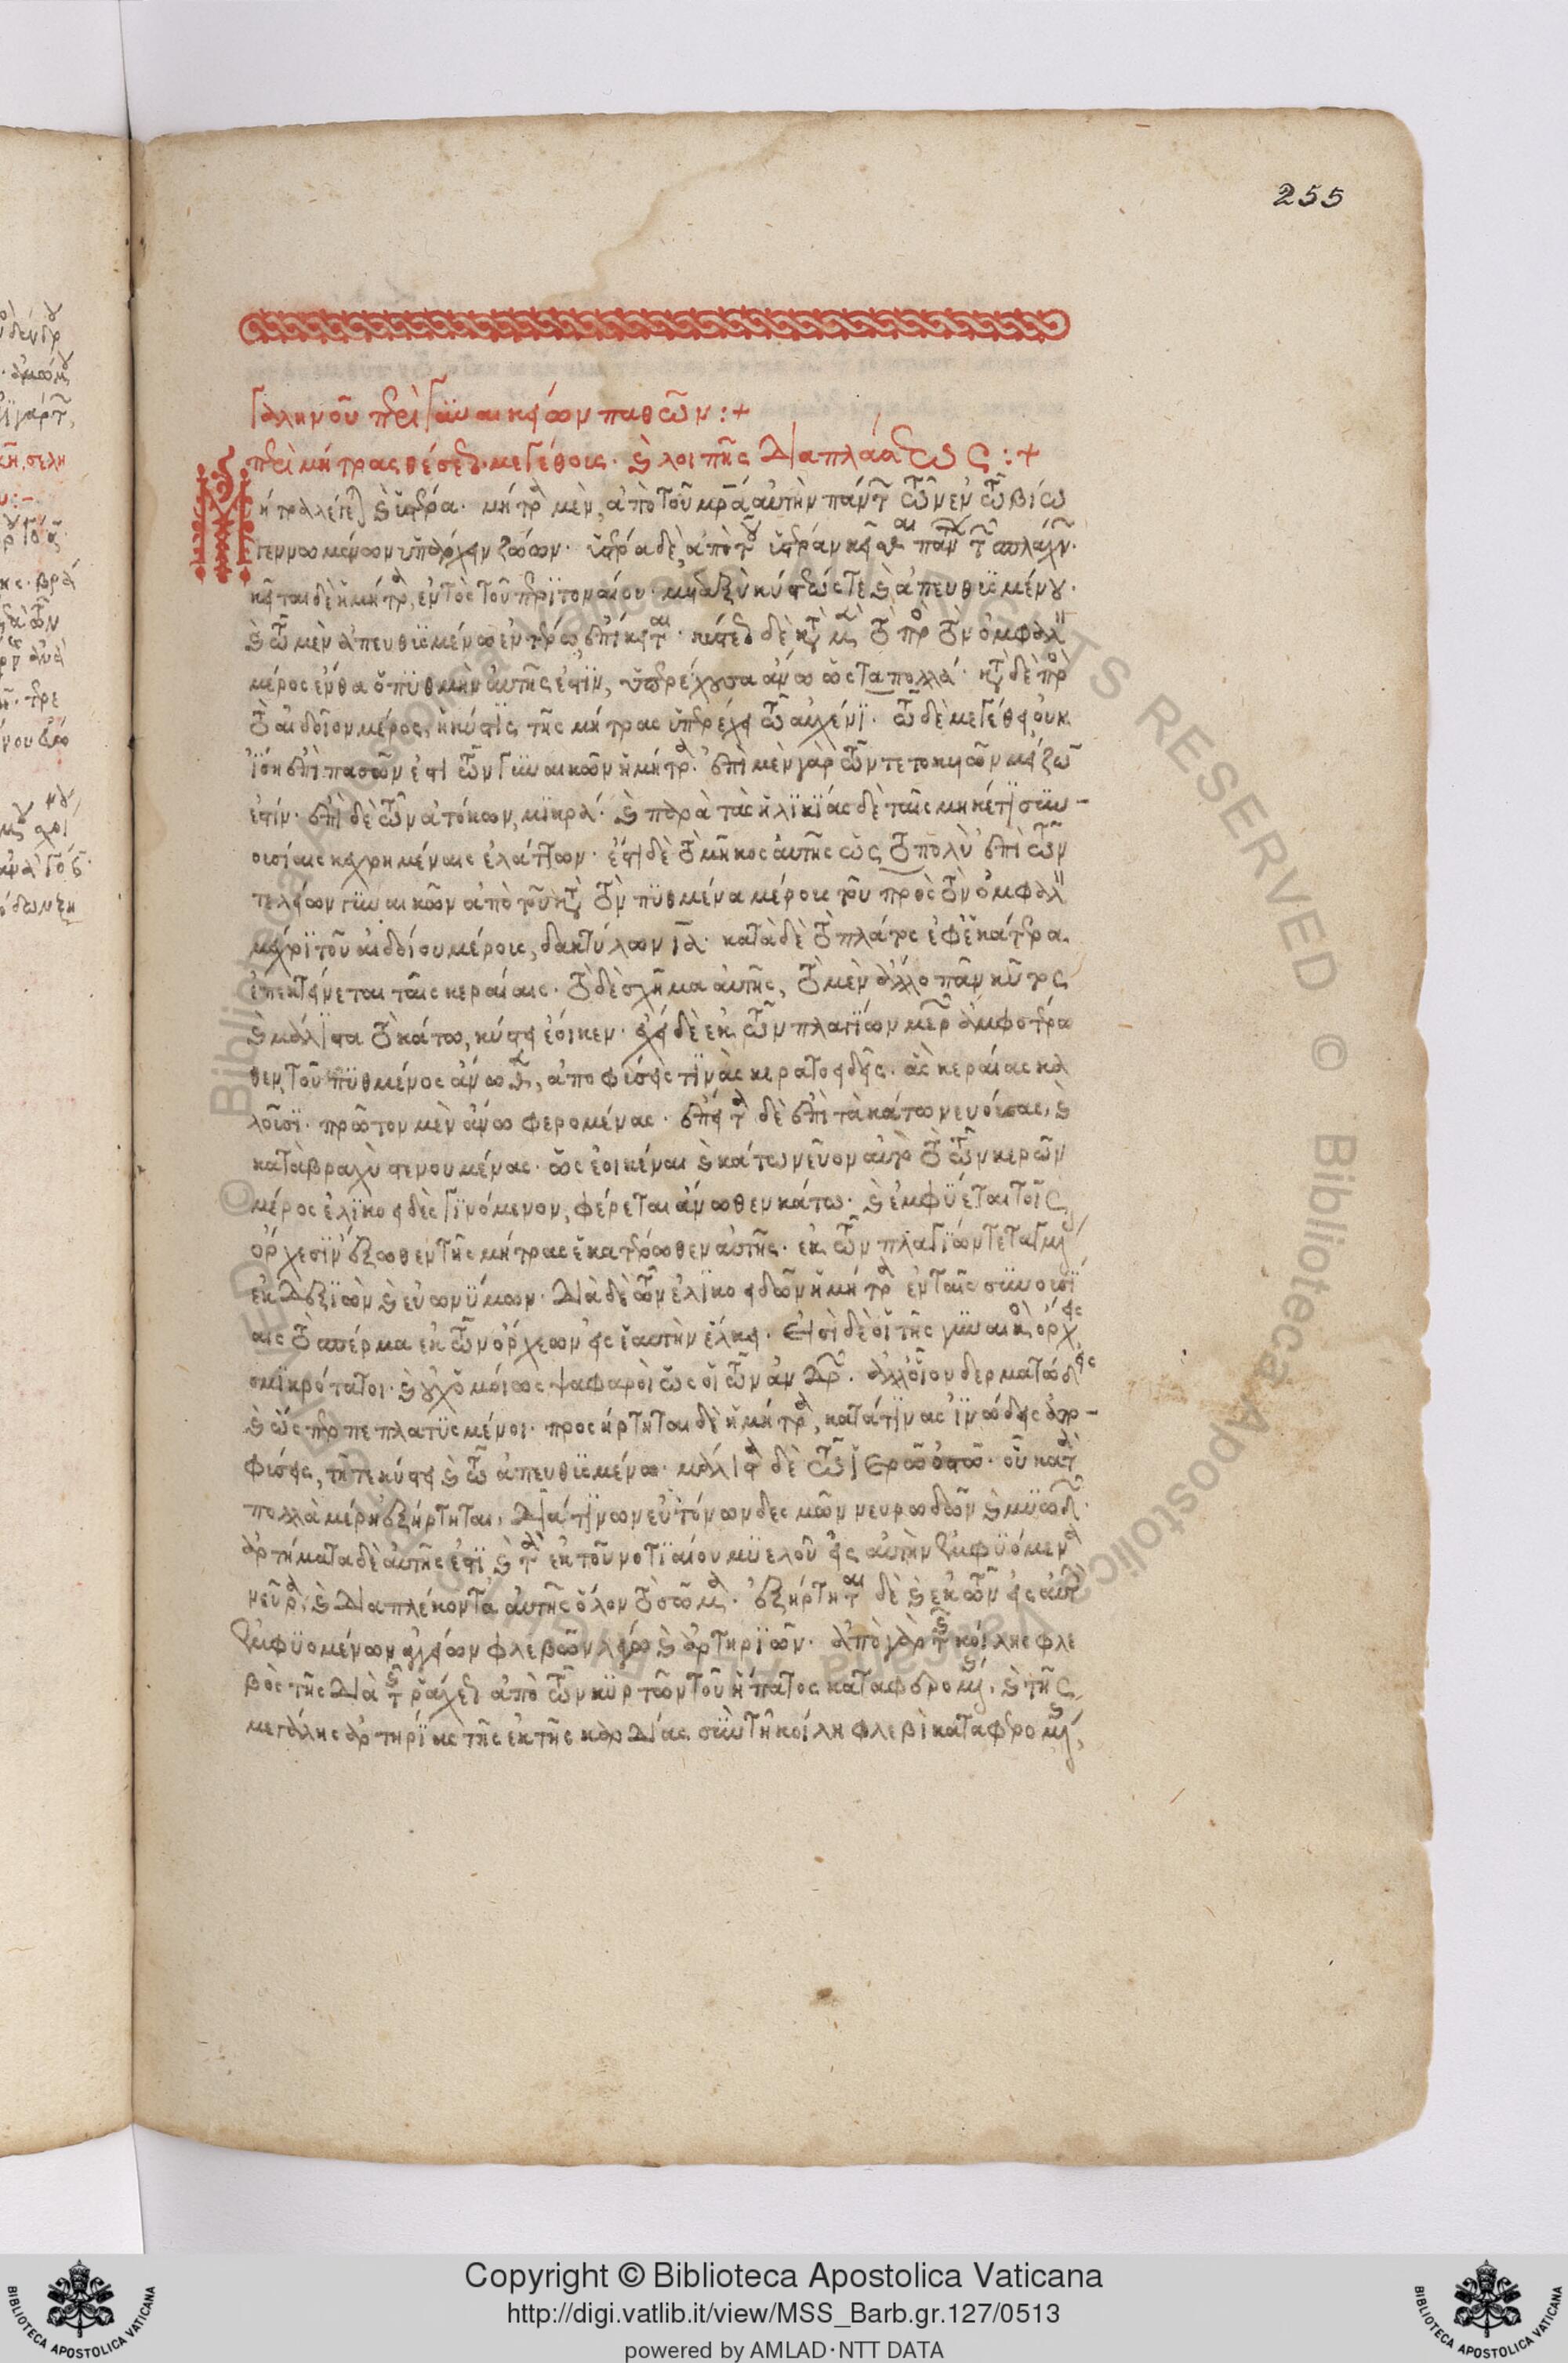 255
Γαληνοῦ περὶ γυναικείων παθῶν :+
περὶ μήτρας θέσεως. μεγέθους. καὶ λοιπῆς διαπλάσεως :+
μήτρα λέγεται καὶ ὑστέρα. μήτρα μὲν, ἀπὸ τοῦ μητέρα αὐτὴν πάντων τῶν ἐν τῶ βίω
γεννωμένων ὑπάρχειν ζώων. ὑστέρα δὲ, ἀπὸ τοῦ ὑστέραν κεῖσθαι πάντων τῶν σπλάγχνων.
κεῖται δὲ ἡ μήτρα, ἐντὸς τοῦ περιτοναίου. μεταξὺ κύστεώς τε καὶ ἀπευθυσμένου.
καὶ τῶ μὲν ἀπευθυσμένω ἐντέρω, ἐπίκειται. κύστεως δὲ κατὰ μὲν τὸ πρὸς τὸν ὀμφαλὸν
μέρος ἔνθα ὁ πυθμὴν αὐτῆς ἐστὶν, ὑπερέχουσα ἄνω ὡς τα πολλά. κατὰ δὲ πρὸς
τὸ αἰδοῖον μέρος, ἡ κύστις τῆς μήτρας ὑπερέχει τῶ αὐχένι. τῶ δὲ μεγέθει, οὐκ
ἴση ἐπὶ πασῶν ἐστὶ τῶν γυναικῶν ἡ μήτρα. ἐπὶ μὲν γὰρ τῶν τετοκυιῶν μείζων
ἐστίν. ἐπὶ δὲ τῶν ἀτόκων, μικρά. καὶ παρὰ τὰς ἡλικίας δὲ ταῖς μηκέτι συν-
ουσίαις κεχρημέναις ἐλάττων. ἔστι δὲ τὸ μῆκος αὐτῆς ὡς τὸ πολὺ ἐπὶ τῶν
τελείων γυναικῶν ἀπὸ τοῦ κατὰ τὸν πυθμένα μέρους τοῦ πρὸς τὸν ὀμφαλὸν
μέχρι τοῦ αἰδοίου μέρους, δακτύλων ια. κατὰ δὲ τὸ πλάτος ἐφ' ἑκάτερα
ἐπεκτείνεται ταῖς κεραίαις. τὸ δὲ σχῆμα αὐτῆς, τὸ μὲν ἄλλο πᾶν κῦτος
καὶ μάλιστα τὸ κάτω, κύστει ἔοικεν. ἔχει δὲ ἐκ τῶν πλαγίων μερῶν ἀμφοτέρω
θεν, τοῦ πυθμένος ἄνωθεν, ἀποφύσεις τινὰς κερατοειδεῖς. ἃς κεραίας κα
λοῦσι. πρῶτον μὲν ἄνω φερομένας. ἔπειτα δὲ ἐπὶ τὰ κάτω νευούσας, καὶ
κατὰ βραχὺ στενουμένας. ὡς ἐοικέναι καὶ κάτω νεῦον αὐτὸ τὸ τῶν κερῶν
μέρος ἑλικοειδὲς γινόμενον, φέρεται ἄνωθεν κάτω. καὶ ἐμφύεται τοῖς
ὄρχεσιν ἔξωθεν τῆς μήτρας ἑκατέρωθεν αὐτῆς. ἐκ τῶν πλαγίων τεταγμένοις
ἐκ δεξιῶν καὶ εὐωνύμων. διὰ δὲ τῶν ἑλικοειδῶν ἡ μήτρα ἐν ταῖς συνουσί
αις τὸ σπέρμα ἐκ τῶν ὄρχεων εἰς ἑαυτὴν ἕλκει. εἰσὶ δὲ οἱ τῆς γυναικὸς ὄρχεις
σμικρότατοι. καὶ οὐχ ὁμοίως ψαφαροὶ ὡς οἱ τῶν ἀνδρῶν. ἀλλ' οἷον δερματώδεις
καὶ ὥσπερ πεπλατυσμένοι. προσήρτηται δὲ ἡ μήτρα, κατά τινας ἰνώδεις ἀπο-
φύσεις, τῆ τε κύστει καὶ τῶ ἀπευθυσμένω. μάλιστα δὲ τῶ ἱερῶ ὀστῶ. οὗ κατὰ
πολλὰ μέρη ἐξήρτηται, διά τινων εὐτόνων δεσμῶν νευρωδῶν καὶ μυωδῶν.
ἀρτήματα δὲ αὐτῆς ἐστὶ καὶ τὰ ἐκ τοῦ νωτιαίου μυελοῦ εἰς αὐτὴν ἐμφυόμενα
νεῦρα, καὶ διαπλέκοντα αὐτῆς ὅλον τὸ σῶμα. ἐξήρτηται δὲ καὶ ἐκ τῶν εἰς αὐτὴν
ἐμφυομένων ἀγγείων φλεβῶν λέγω καὶ ἀρτηριῶν. ἀπὸ γὰρ τῆς κοίλης φλε
βὸς τῆς διὰ τῆς ῥάχεως ἀπὸ τῶν κυρτῶν τοῦ ἥπατος καταφερομένης, καὶ τῆς
μεγάλης ἀρτηρίας τῆς ἐκ τῆς καρδίας σὺν τῆ κοίλη φλεβὶ καταφερομένης,
Copyright © Biblioteca Apostolica Vaticana
http://digi.vatlib.it/view/MSS_Barb.gr.127/0513
powered by AMLAD·NTT DATA